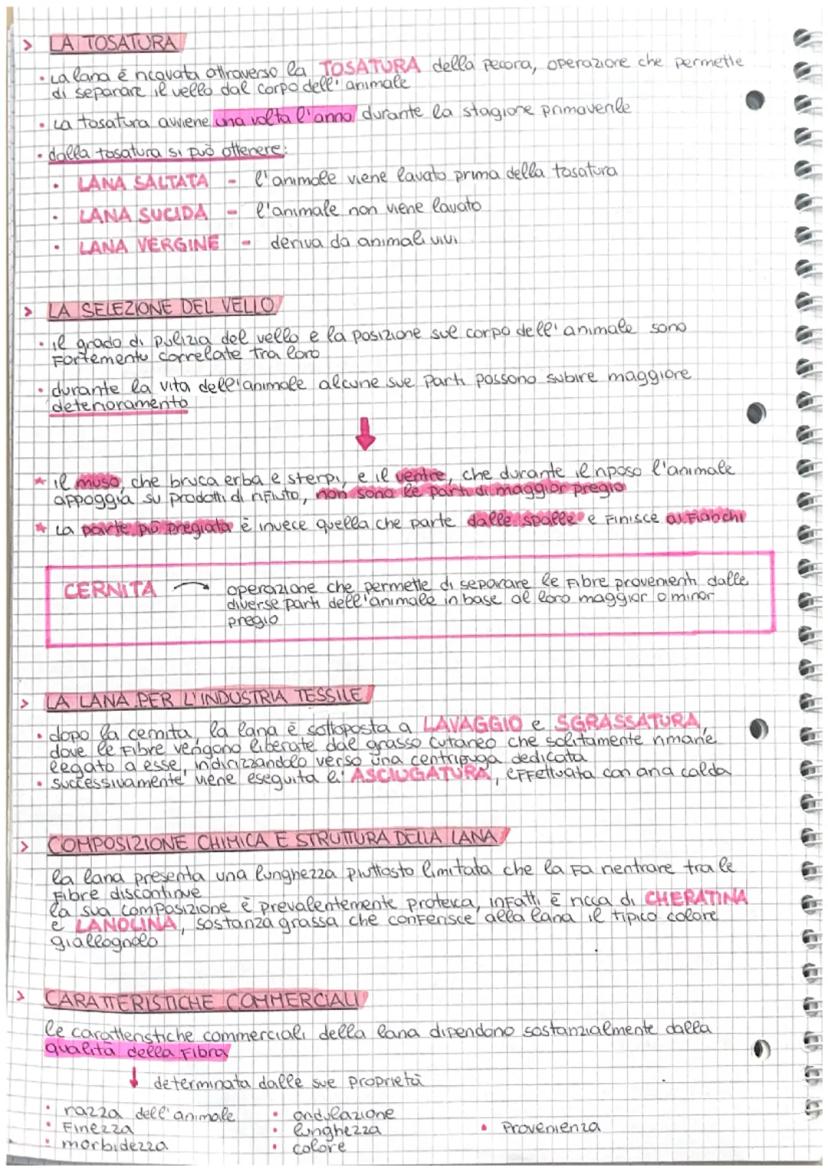 > LA TOSATURA
• La lana è ricavata attraverso la TOSATURA della pecora, operazione che permette
di separare il vello dal corpo dell'animale
• La tosatura avviene una volta l'anno durante la stagione primaverile
• dalla tosatura si può ottenere:
• LANA SALTATA - l'animale viene lavato prima della tosatura
• LANA SUCIDA - l'animale non viene lavato
• LANA VERGINE - deriva da animali vivi
> LA SELEZIONE DEL VELLO
• il grado di pulizia del vello e la posizione sul corpo dell'animale sono
fortemente correlate tra loro
• durante la vita dell'animale alcune sue parti possono subire maggiore
deterioramento
* il muso, che bruca erba e sterpi, e il ventre, che durante il riposo l'animale
appoggia su prodotti di rifiuto, non sono le parti di maggior pregio
* La parte più pregiata è invece quella che parte dalle spalle e finisce ai fianchi
CERNITA → operazione che permette di separare le fibre provenienti dalle
diverse parti dell'animale in base al loro maggior o minor
pregio
> LA LANA PER L'INDUSTRIA TESSILE
• dopo la cernita, la lana è sottoposta a LAVAGGIO e SGRASSATURA,
dove le fibre vengono liberate dal grasso cutaneo che solitamente rimane
legato a esse, indirizzandolo verso una centrifuga dedicata
• successivamente viene eseguita l'ASCIUGATURA, effettuata con aria calda
> COMPOSIZIONE CHIMICA E STRUTTURA DELLA LANA
la lana presenta una lunghezza piuttosto limitata che la fa rientrare tra le
fibre discontinue
la sua composizione è prevalentemente proteica, infatti è ricca di CHERATINA
e LANOLINA, sostanza grassa che conferisce alla lana il tipico colore
giallognolo
> CARATTERISTICHE COMMERCIALI
le caratteristiche commerciali della lana dipendono sostanzialmente dalla
qualità della fibra
↓ determinata dalle sue proprietà
• razza dell'animale • ondulazione
• finezza • lunghezza • provenienza
• morbidezza • colore